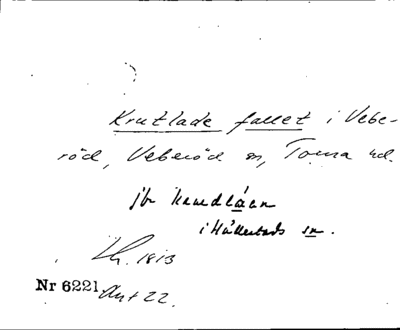 Krutlade fallet i Vebe-
röd, Veberöd sn, Torna hd.
jfr
i Hällestads sn.
Lh. 1813
Nr 6221 Ant 22.